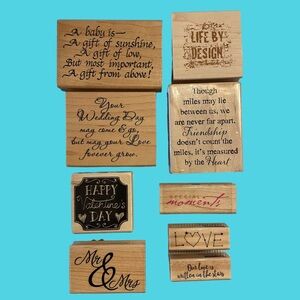 A baby is—
A gift of sunshine,
A gift of love,
But most important,
A gift from above!
LIFE BY
DESIGN
Your
Wedding Day
may come & go,
but may your Love
forever grow.
Though
miles may lie
between us, we
are never far apart.
Friendship
doesn't count the
miles, it's measured
by the Heart
HAPPY
Valentine's
DAY
SPECIAL
moments
Mr
&
Mrs
LOVE
Our love is
written in the stars